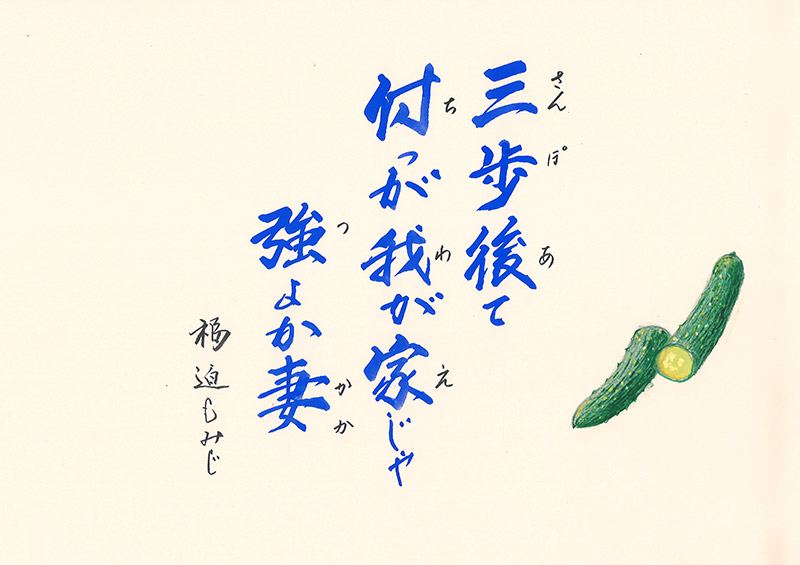 三歩後て
さんぽ あ
付っが我が家じゃ
ち わ え
強よか妻
つ かか
福迫もみじ